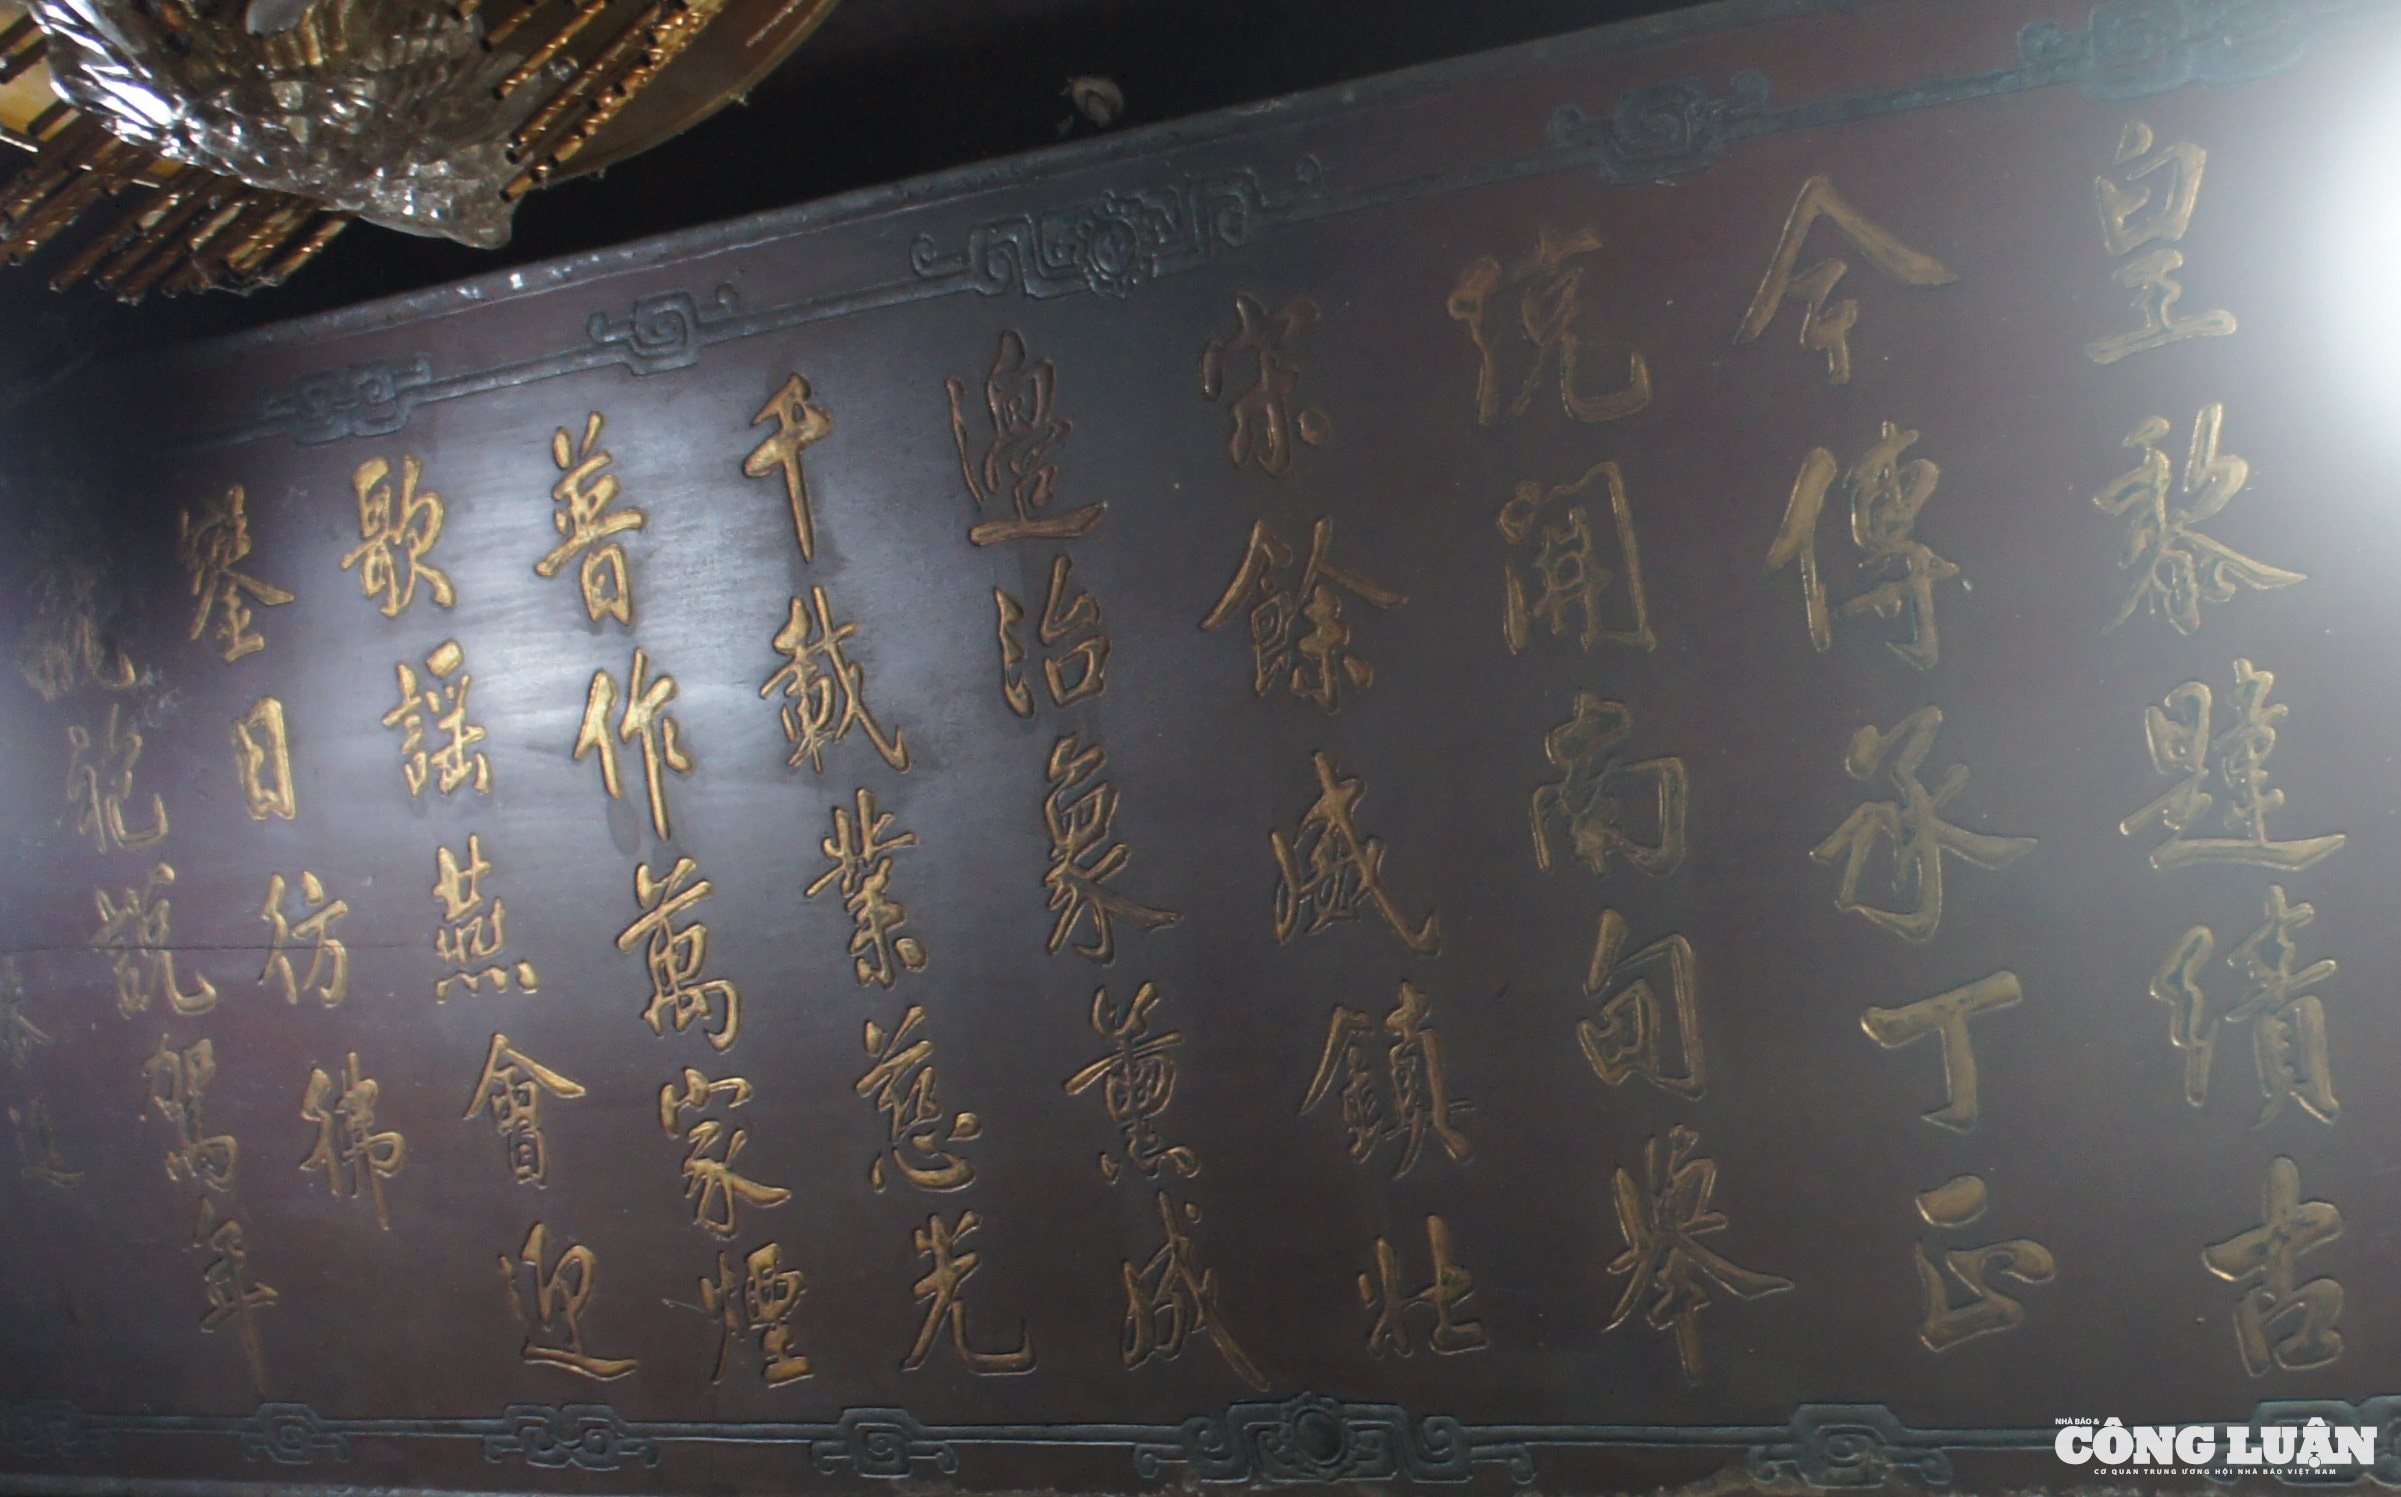 皇黎韙續古
今傳承丁正
統開南甸舉
宋餘威鎮壯
邊治象薰成
千載業慈光
普作萬家煙
歌謡燕會迎
鑾日彷彿
駕年
NHÀ BÁO &
CÔNG LUẬN
CƠ QUAN TRUNG ƯƠNG HỘI NHÀ BÁO VIỆT NAM